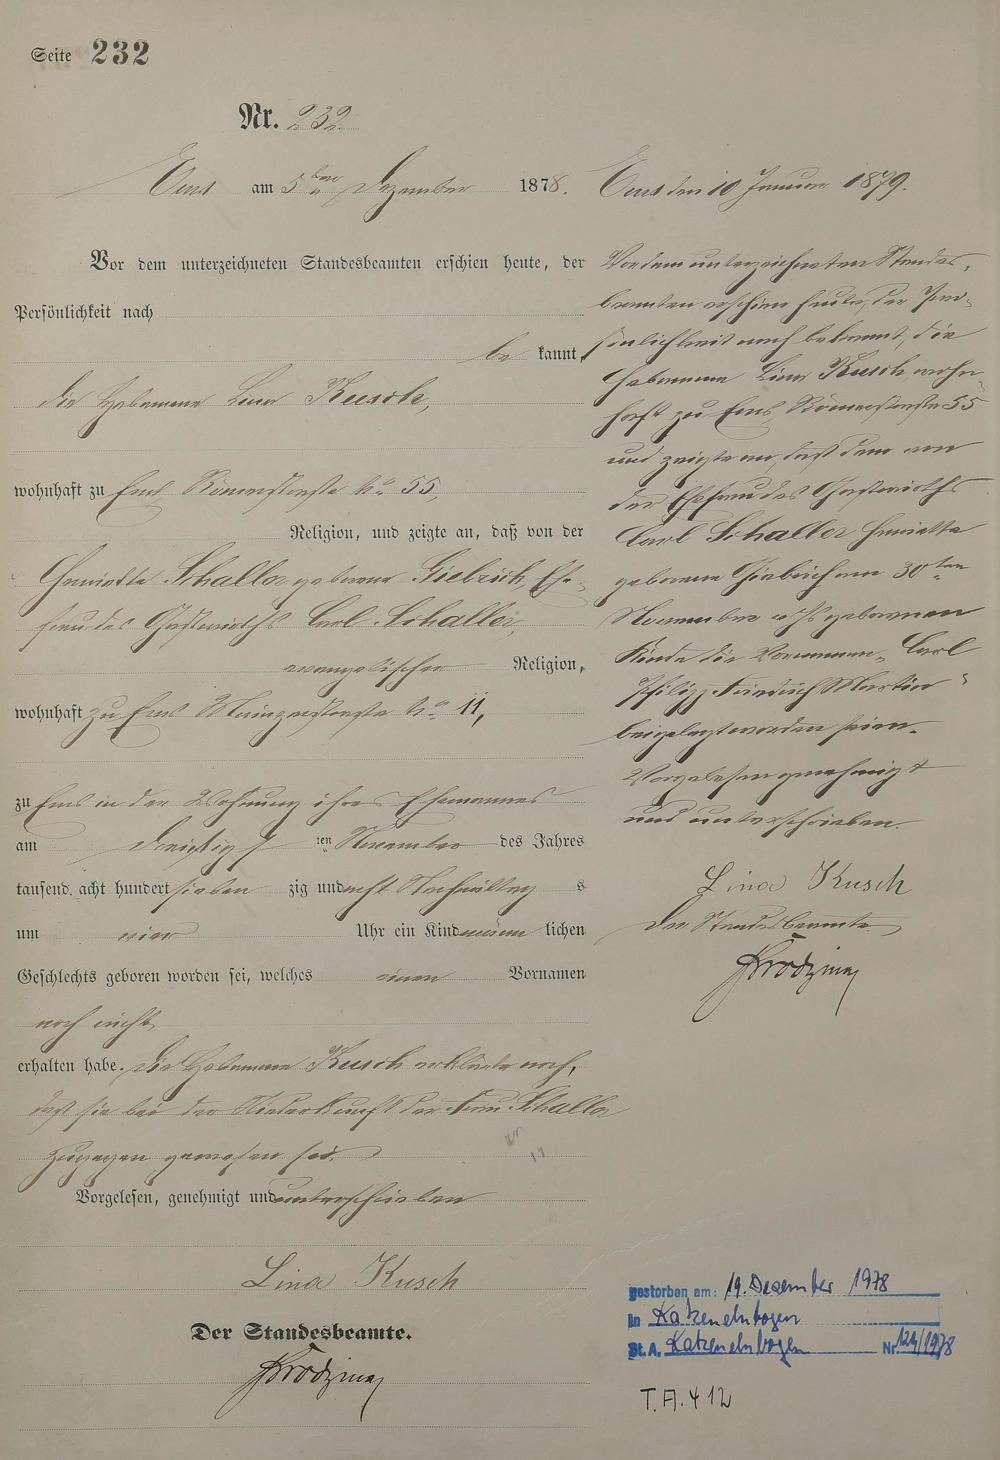 Seite 232
Nr. 232
Ems am 5ten Dezember 1878.
Vor dem unterzeichneten Standesbeamten erschien heute, der
Persönlichkeit nach
be kannt,
die Hebamme Lina Kusch,
wohnhaft zu Ems, Römerstraße No 55,
Religion, und zeigte an, daß von der
Henriette Schaller geborene Giebrich, Ehe-
frau des Gastwirths Carl Schaller,
evangelischer Religion,
wohnhaft zu Ems Mainzerstraße No 11,
zu Ems in der Wohnung ihres Ehemannes
am dreißigs ten November des Jahres
tausend acht hundert sieben zig und acht Nachmittag s
um vier Uhr ein Kind männ lichen
Geschlechts geboren worden sei, welches einen Vornamen
noch nicht
erhalten habe. Die Hebamme Kusch erklärte noch,
daß sie bei der Niederkunft der Frau Schaller
zugegen gewesen sei.
Vorgelesen, genehmigt und unterschrieben
Lina Kusch
Der Standesbeamte.
Ems den 10 Januar 1879.
Vor dem unterzeichneten Standes-
beamten erschien heute, der Per-
sönlichkeit nach bekannt, die
Hebamme Lina Kusch, wohn-
haft zu Ems, Römerstraße 55
und zeigte an, daß dem von
der Ehefrau des Gastwirths
Carl Schaller Henriette
geborene Giebrich am 30ten
November geborenen
Kinde die Vornamen "Carl
Philipp Friedrich Martin"
beigelegt worden seien.
Vorgelesen genehmigt
und unterschrieben.
Lina Kusch
Der Standesbeamte
gestorben am: 19. Dezember 1978
in Katzenelnbogen
St.A. Katzenelnbogen Nr. 124/1978
T.A. 412